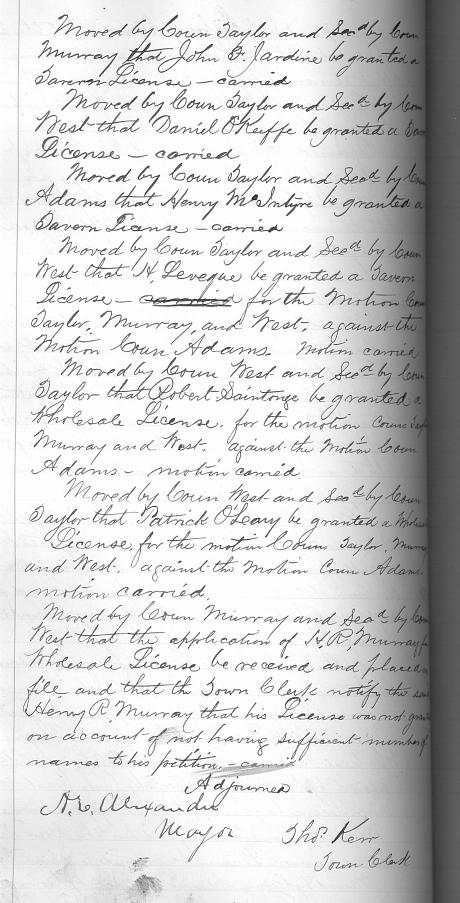 Moved by Coun Taylor and Secd by Coun
Murray that John F. Jardine be granted a
Tavern License – carried
Moved by Coun Taylor and Secd by Coun
West that Daniel O'Keiffe be granted a
License – carried
Moved by Coun Taylor and Secd by Coun
Adams that Henry McIntyre be granted a
Tavern License – carried
Moved by Coun Taylor and Secd by Coun
West that H. Levegue be granted a Tavern
License – carried for the Motion Coun
Taylor, Murray, and West. against the
Motion Coun Adams. Motion carried
Moved by Coun West and Secd by Coun
Taylor that Robert Saintonge be granted a
Wholesale License. for the motion Couns
Murray and West. against the Motion Coun
Adams – motion carried.
Moved by Coun West and Secd by Coun
Taylor that Patrick O'Leary be granted a
License, for the motion Couns Taylor,
and West. against the Motion Coun Adams.
motion carried.
Moved by Coun Murray and Secd by
West that the application of H. R. Murray
Wholesale License be received and placed
file, and that the Town Clerk notify the
Henry R. Murray that his License was not
on account of not having sufficient number
names to his petition. – carried
Adjourned
A. E. Alexander
Mayor
Thos Kerr
Town Clerk